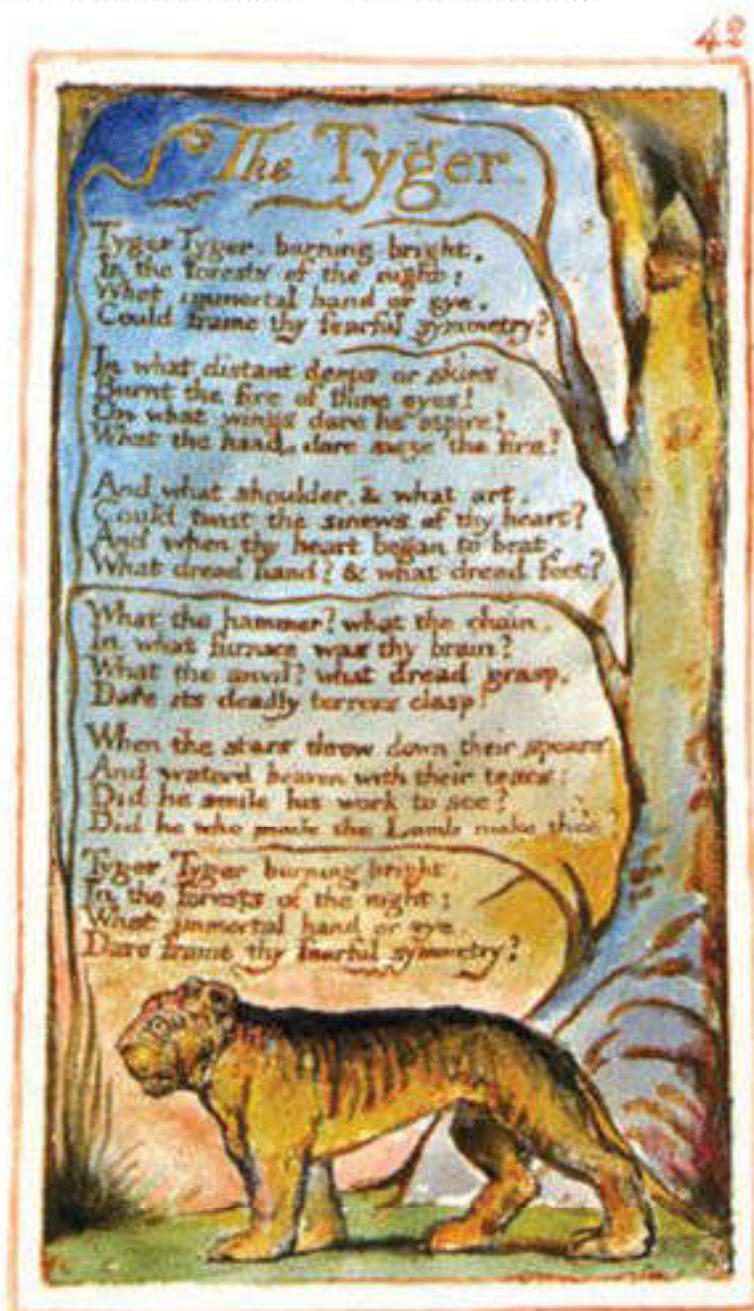 42
The Tyger
Tyger Tyger. burning bright,
In the forests of the night:
What immortal hand or eye.
Could frame thy fearful symmetry?
In what distant deeps or skies.
Burnt the fire of thine eyes?
On what wings dare he aspire?
What the hand, dare sieze the fire?
And what shoulder, & what art,
Could twist the sinews of thy heart?
And when thy heart began to beat,
What dread hand? & what dread feet?
What the hammer? what the chain,
In what furnace was thy brain?
What the anvil? what dread grasp,
Dare its deadly terrors clasp!
When the stars threw down their spears
And water'd heaven with their tears:
Did he smile his work to see?
Did he who made the Lamb make thee?
Tyger Tyger burning bright,
In the forests of the night:
What immortal hand or eye,
Dare frame thy fearful symmetry?